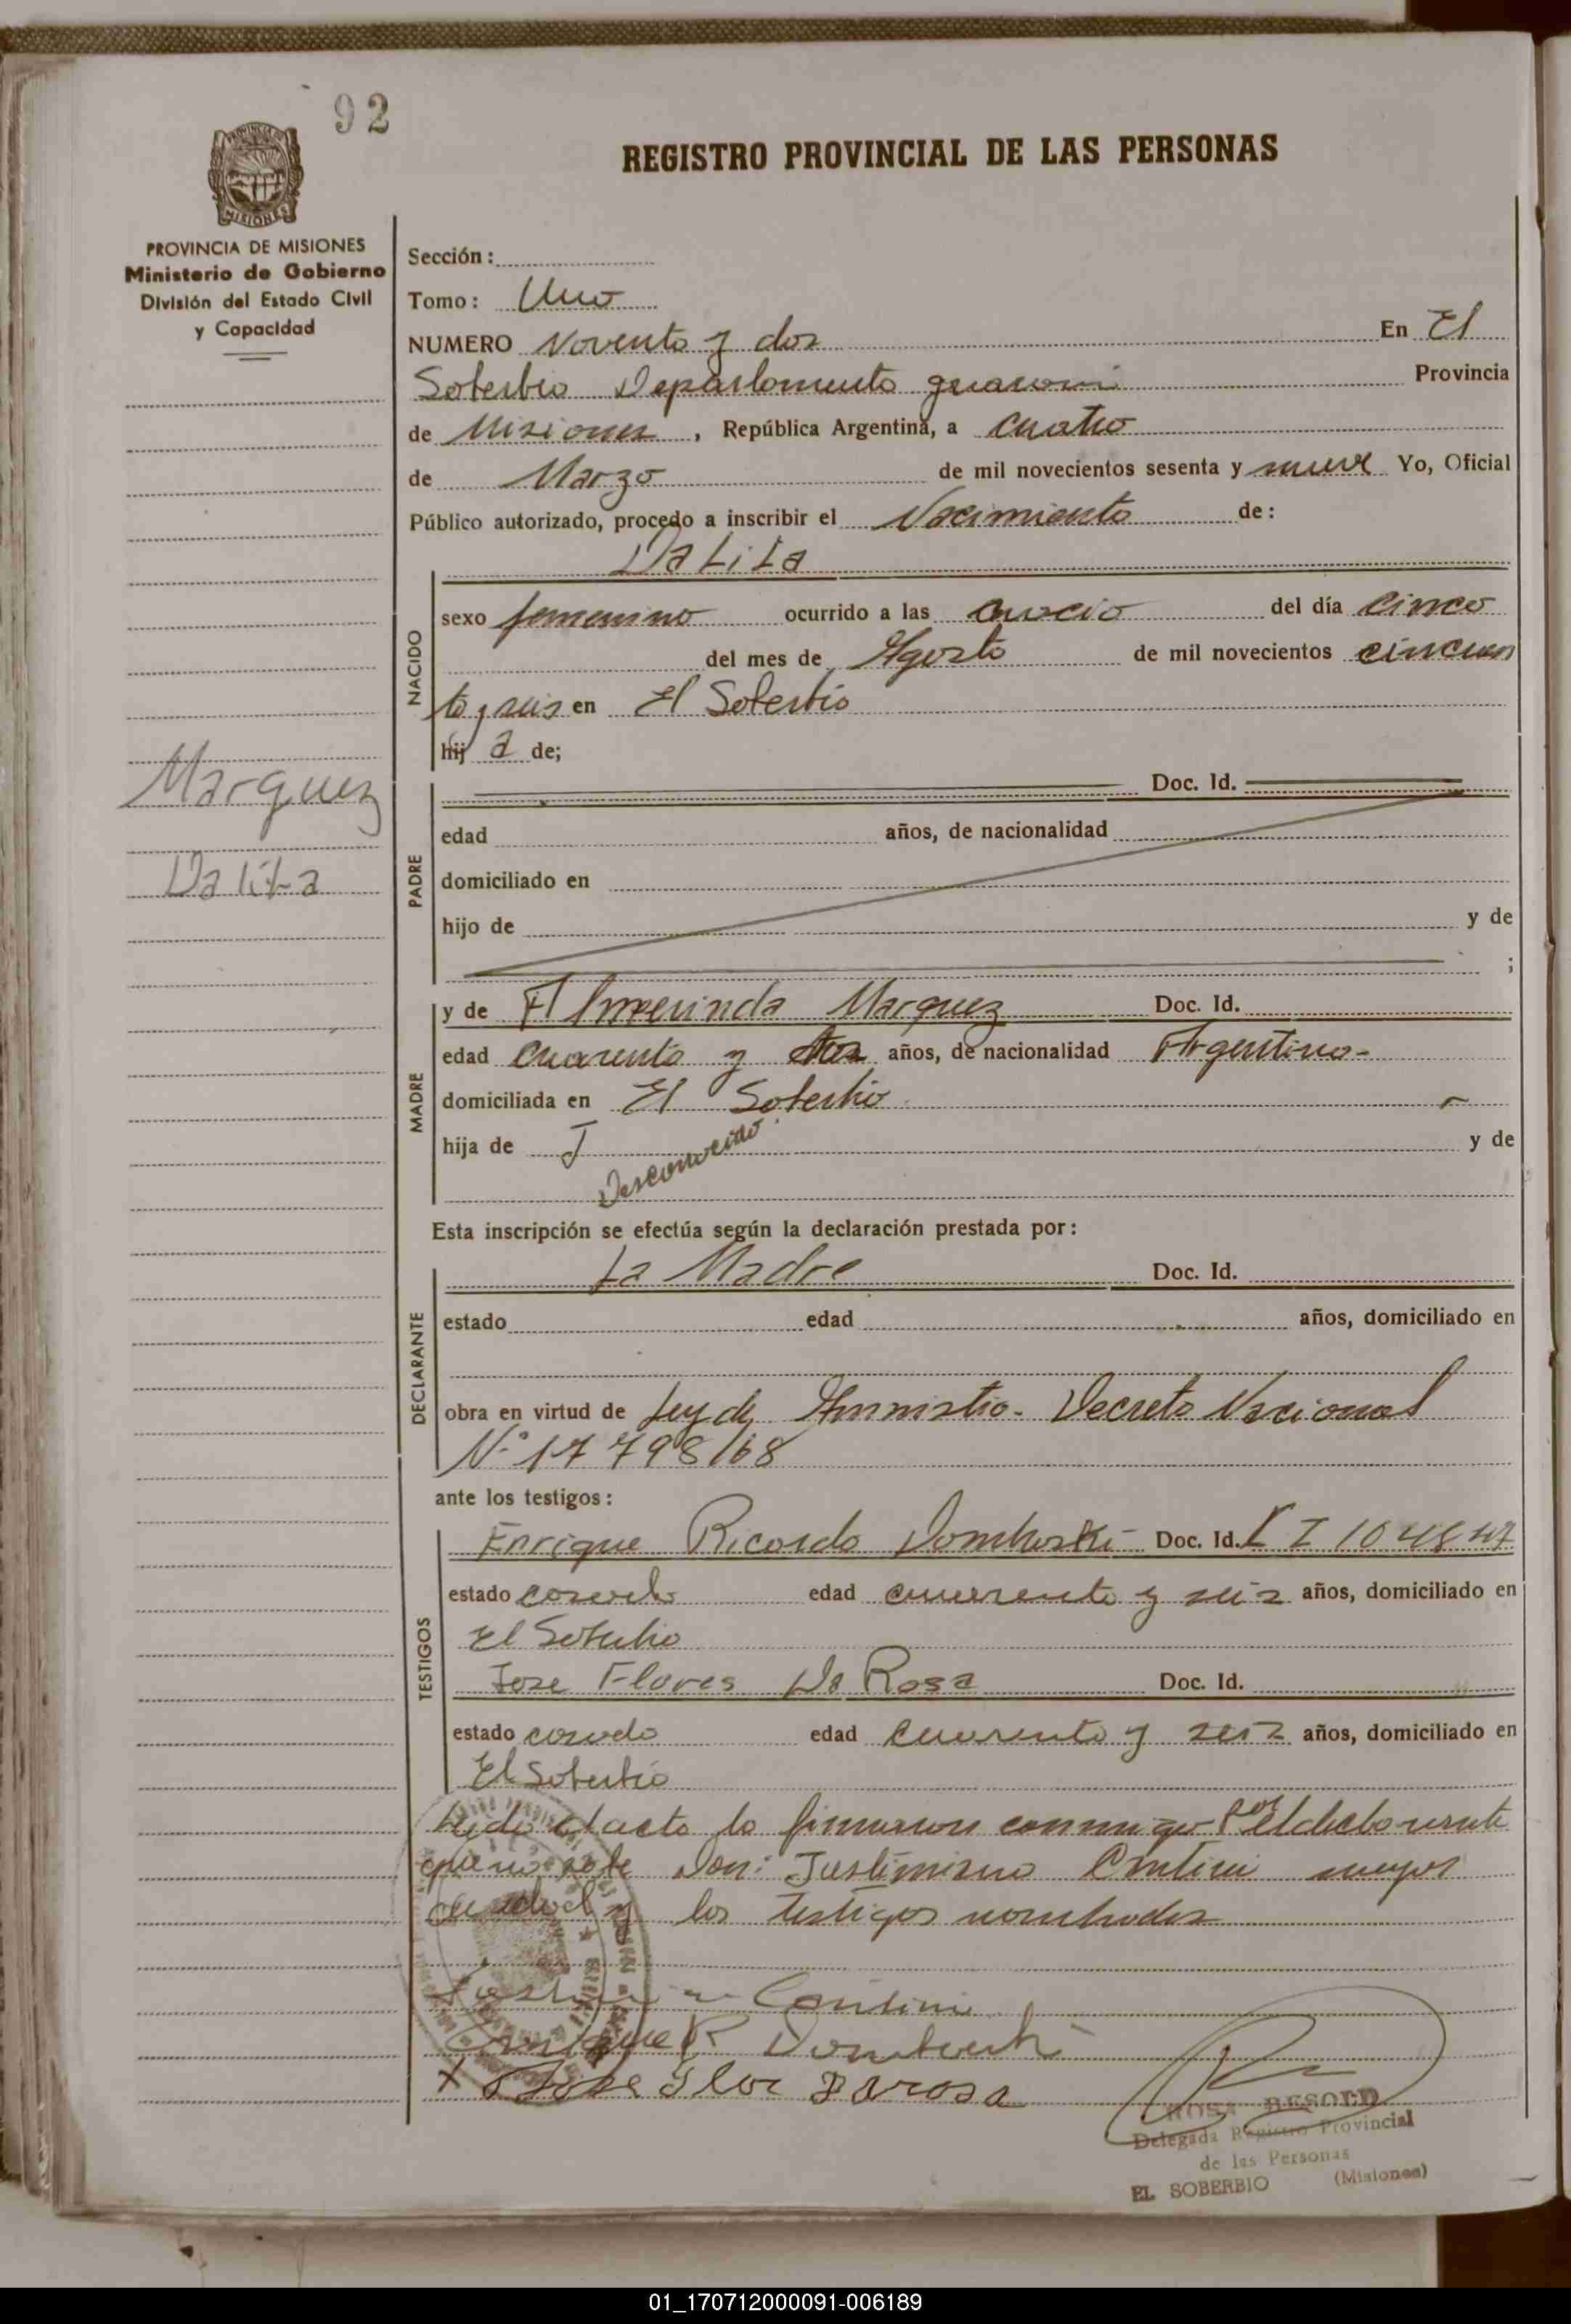 92
REGISTRO PROVINCIAL DE LAS PERSONAS
PROVINCIA DE MISIONES
MISIONES
PROVINCIA DE MISIONES
Ministerio de Gobierno
División del Estado Civil
y Capacidad
Sección:
Tomo: Uno
NUMERO Noventa y dos En El
Soberbio Departamento guarani Provincia
de Misiones, República Argentina, a cuatro
de Marzo de mil novecientos sesenta y nueve Yo, Oficial
Público autorizado, procedo a inscribir el Nacimiento de:
Dalila
NACIDO
sexo femenino ocurrido a las del día cinco
del mes de Agosto de mil novecientos cincuen
ta y seis en El Soberbio
hij a de;
Marquez
Dalila
PADRE
Doc. Id.
edad años, de nacionalidad
domiciliado en
hijo de y de
;
MADRE
y de Almerinda Marquez Doc. Id.
edad cuarenta y dos años, de nacionalidad Argentina-
domiciliada en El Soberbio
hija de Desconocido y de
Esta inscripción se efectúa según la declaración prestada por:
DECLARANTE
La Madre Doc. Id.
estado edad años, domiciliado en
obra en virtud de Ley de Amnistia- Decreto Nacional
Nº 17798/68
ante los testigos:
TESTIGOS
Enrique Ricardo Domboski Doc. Id.
estado casado edad cuarenta y seis años, domiciliado en
El Soberbio
Jose Flores Da Rosa Doc. Id.
estado casado edad cuarenta y seis años, domiciliado en
El Soberbio
Leido el acta la firmaron conmigo Por
que no sabe Don: Justiniano Contini mayor
de edad y los testigos nombrados
Contini
Enrique R Domboski
X Jose Flor Darosa
ROSA RESOLD
Delegada Registro Provincial
de las Personas
EL SOBERBIO (Misiones)
01_170712000091-006189